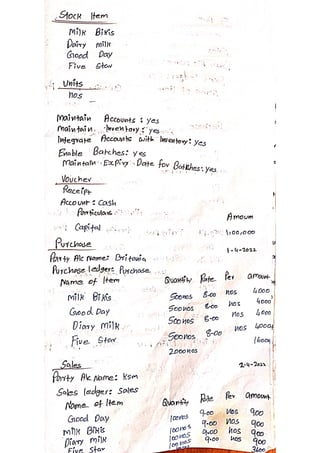 Stock Item
Milk Bikis
Dairy milk
Good Day
Five Star
Units
nos
Maintain Accounts : yes
Maintain Inventory : yes
Integrate Accounts with Inventory: yes
Enable Batches: yes
Maintain Expiry Date for Batches: yes
Voucher
Receipt
Account : Cash
Particulars Amount
Capital 1,00,000
Purchase 1-4-2022
Party A/c Name: Britania
Purchase ledger: Purchase
Name of Item Quantity Rate Per amount
Milk Bikis 500nos 8.00 nos 4000
Good Day 500nos 8.00 nos 4000
Diary Milk 500nos 8.00 nos 4000
Five Star 500nos 8.00 nos 4000
2000nos 16000
Sales 2-4-2022
Party A/c Name: Ksm
Sales ledger: Sales
Name of Item Quantity Rate Per amount
Good Day 100nos 9.00 nos 900
Milk Bikis 100nos 9.00 nos 900
Diary milk 100nos 9.00 nos 900
Five Star 100nos 9.00 nos 900
3600